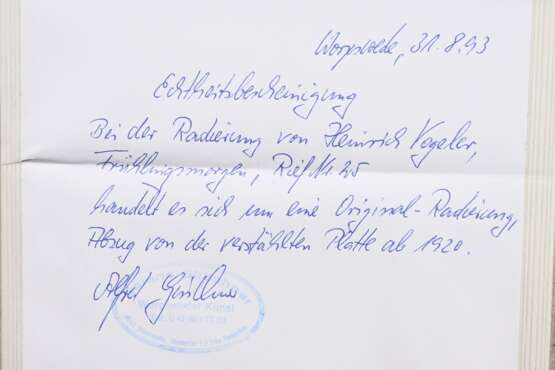 Worpswede, 31.8.93
Echtheitsbescheinigung
Bei der Radierung von Heinrich Vogeler,
Frühlingsmorgen, Rief Nr. 25
handelt es sich um eine Original-Radierung,
Abzug von der verstählten Platte ab 1920.
Alfred
Kunst